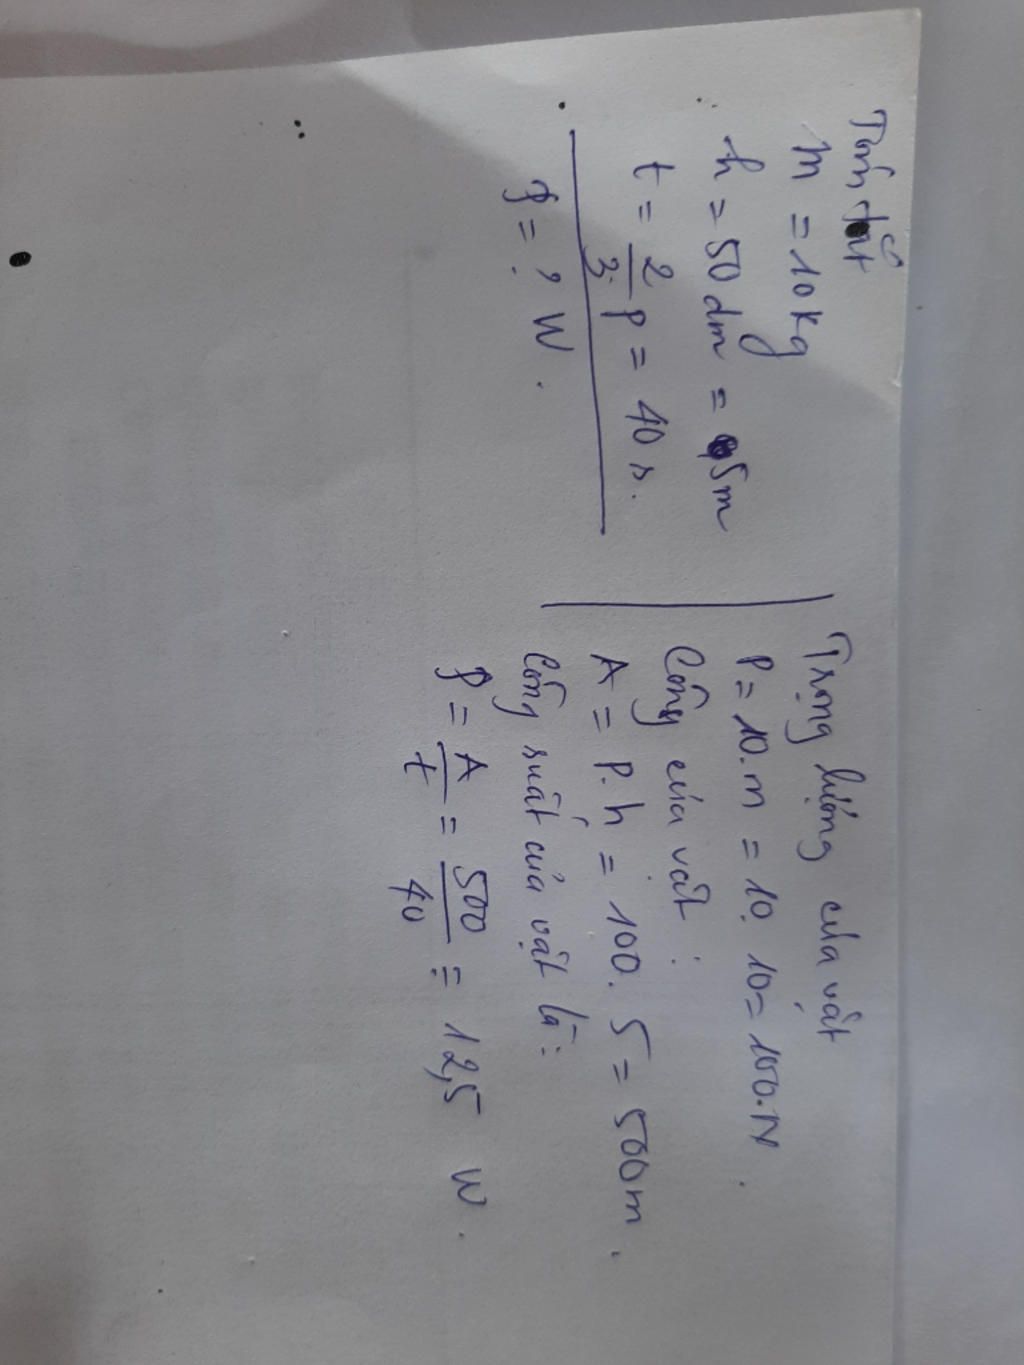 Tóm tắt
m = 10kg
h = 50 dm = 5m
t = 2/3 p = 40 s.
P = ? W.
Trọng lượng của vật
P = 10.m = 10. 10 = 100.N.
Công của vật :
A = P. h = 100. 5 = 500m.
Công suất của vật là:
P = A/t = 500/40 = 12,5 W.